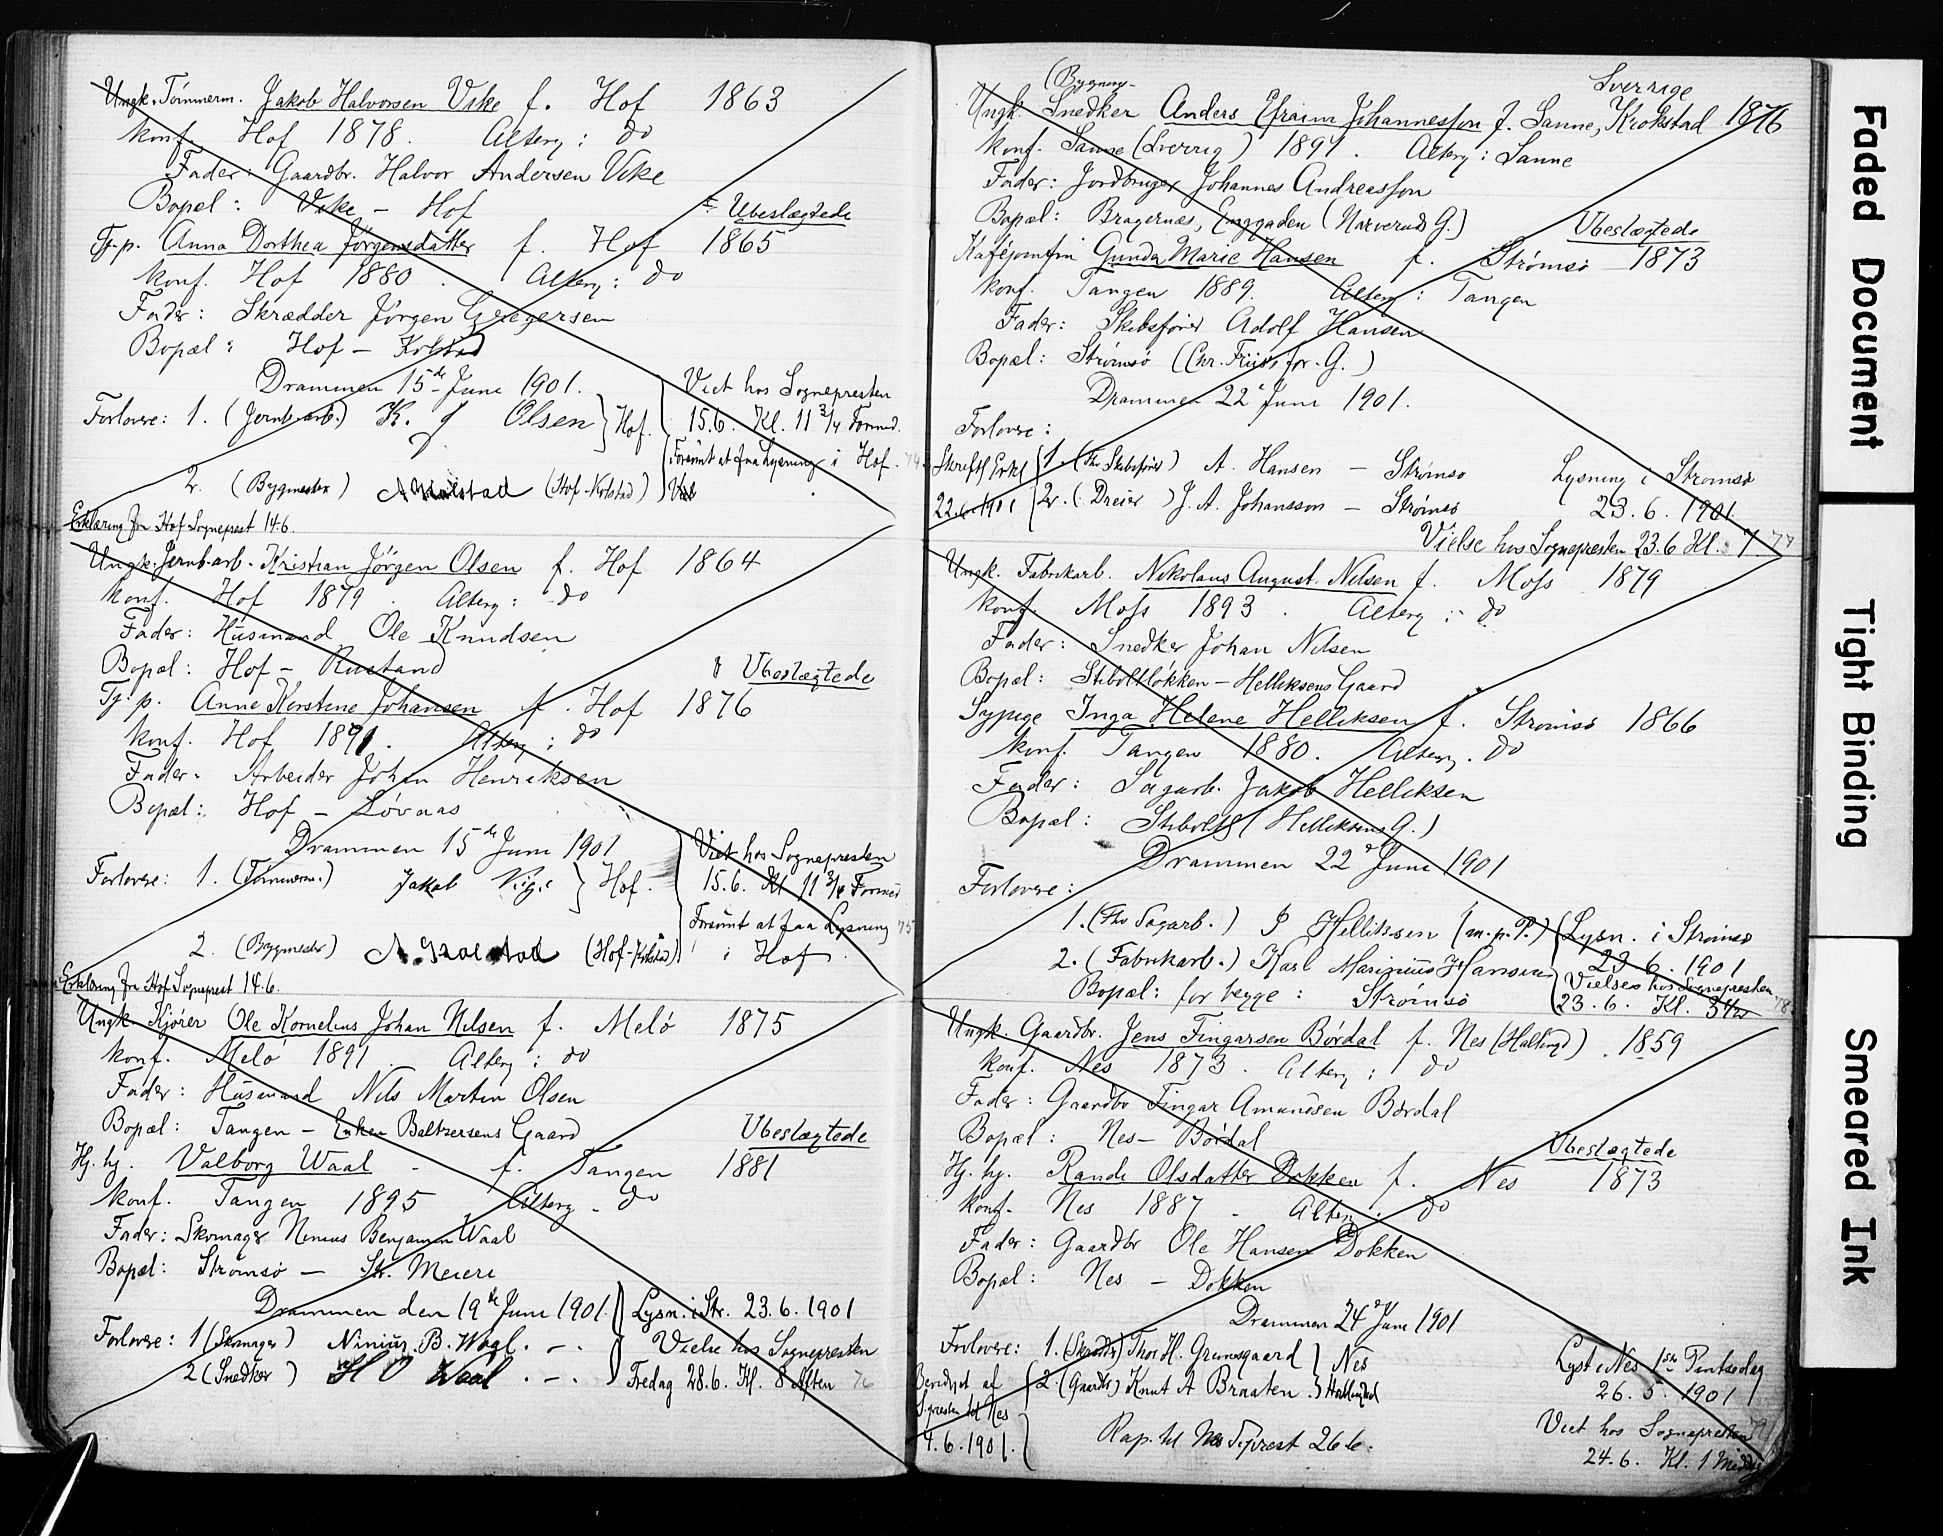 Ungk. Tömmerm. Jakob Halvorsen Vike f. Hof 1863
konf. Hof 1878. Alterg: do
Fader: Gaardbr. Halvor Andersen Vike
Bopæl: Vike – Hof
Ubeslægtede
Tj. p. Anna Dorthea Jörgensdatter f. Hof 1865
konf. Hof 1880. Alterg: do
Fader: Skrædder Jörgen Gregersen
Bopæl: Hof – Kolstad
Drammen 15de Juni 1901.
Viet hos Sognepresten
Forlovere: 1. (Jernb.arb.) K. J Olsen } Hof.
15.6. Kl. 11 3/4 Formd.
Forsömt at faa Lysning i Hof.
2. (Bygmester) A Kolstad (Hof-Kolstad)
Erklæring fra Hof Sogneprest 14.6.
Ungk. Jernb.arb. Kristian Jörgen Olsen f. Hof 1864
konf. Hof 1879. Alterg: do
Fader: Husmand Ole Knudsen
Bopæl: Hof – Rustand
Ubeslægtede
Tj. p. Anne Kirstine Johansen f. Hof 1876
konf. Hof 1891. Alterg: do
Fader: Arbeider Johan Henriksen
Bopæl: Hof – Lövaas
Drammen 15de Juni 1901
Viet hos Sognepresten
Forlovere: 1. (Tömmerm.) Jakob Vige } Hof.
15.6. Kl 11 3/4 Formd
Forsömt at faa Lysning 75
2. (Bygmester) A. Kolstad (Hof-Kolstad) i Hof.
Erklæring fra Hof Sogneprest 14.6.
Ungk. Kjörer Ole Kornelius Johan Nilsen f. Melö 1875
konf. Melö 1891. Alterg: do
Fader: Husmand Nils Martin Olsen
Bopæl: Tangen – Enken Baltzersens Gaard
Ubeslægtede
Hj. hj. Valborg Waal f. Tangen 1881
konf. Tangen 1895 Alterg. do
Fader: Skomager Ninius Benjamin Waal
Bopæl: Strömsö – Str. Meieri
Drammen den 19de Juni 1901.
Lysn. i Str. 23.6.1901
Forlovere: 1 (Skomager) Ninius. B. Waal. – .
Vielse hos Sognepresten
2 (Snedker) H O Waal . – .
Fredag 28.6. Kl. 8 Aften 76
(Bygning-
Sverrige
Ungk. Snedker Anders Efraim Johannesson f. Sanne, Krokstad 1876
konf. Sanne (Sverrig) 1891. Alterg: Sanne
Fader: Jordbruger Johannes Andreasson
Bopæl: Bragernæs, Enggaden (Narverud G.)
Ubeslægtede
Kaféjomfru Gunda Marie Hansen f. Strömsö 1873
konf. Tangen 1889. Alterg: Tangen
Fader: Skibsförer Adolf Hansen
Bopæl: Strömsö (Chr. Friisfor. G.)
Drammen 22de Juni 1901.
Forlovere:
Skriftl Erkl
22.6.1901
1. (Fhv Skibsförer) A. Hansen – Strömsö
Lysning i Strömsö
2. (Dreier) J. A. Johansson – Strömsö
23.6.1901
Vielse hos Sognepresten 23.6 Kl. 7 77
Ungk. Fabrikarb. Nikolaus August Nilsen f. Moss 1879
konf. Moss 1893. Alterg: do
Fader: Snedker Johan Nilsen
Bopæl: Stiboltlökken – Helliksens Gaard
Sypige Inga Helene Helliksen f. Strömsö 1866
konf. Tangen 1880. Alterg. do
Fader: Sagarb. Jakob Helliksen
Bopæl: Stiboltl (Helliksens G.)
Drammen 22de Juni 1901
Forlovere:
1. (Fhv Sagarb.) J Helliksen (m. p. P.)
Lysn. i Strömsö
2. (Fabrikarb.) Karl Marinius Hansen
23.6.1901
Bopæl: for begge: Strömsö
Vielse hos Sognepresten
23.6. Kl. 3 1/2 78
Ungk. Gaardbr. Jens Fingarsen Bördal f. Nes (Hallingd) 1859
konf. Nes 1873. Alterg: do
Fader: Gaardbr Fingar Amundsen Bördal
Bopæl: Nes – Bördal
Ubeslægtede
Hj. hj. Randi Olsdatter Dokken f. Nes 1873
konf. Nes 1887. Alterg. do
Fader: Gaardbr Ole Hansen Dokken
Bopæl: Nes – Dokken
Drammen 24de Juni 1901
Forlovere: 1. Thor H. Grimsgaard } Nes
Lyst i Nes 1ste Pintsedag
Bevidnet af
2 (Gaardbr) Knut A Braaten. } Hallingdal
26.5.1901
S.presten til Nes
4.6.1901.
Rap. til Nes S.prest 26.6.
Viet hos Sognepresten 79
24.6. Kl. 1 Middag
Faded Document
Tight Binding
Smeared Ink